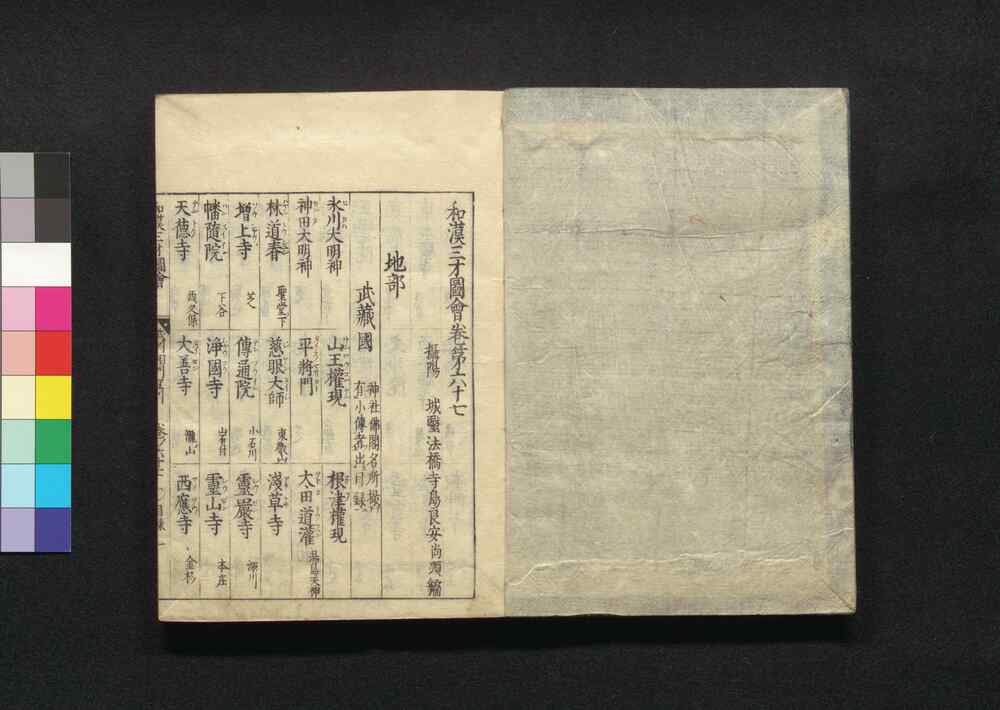 和漢三才圖會卷第六十七
攝陽 城醫法橋寺島良安尚順編
地部
武藏國 神社佛閣名所擬之
有小傳者出目録
氷川大明神 山王權現 根津權現
神田大明神 平將門 太田道灌 湯島天神
林道春 聖堂下 慈眼大師 東叡山 淺草寺
增上寺 芝 傳通院 小石川 靈嚴寺 深川
幡隨院 下谷 淨國寺 岩付 靈山寺 本庄
天德寺 西久保 大善寺 瀧山 西應寺 金杉
和漢三才圖會